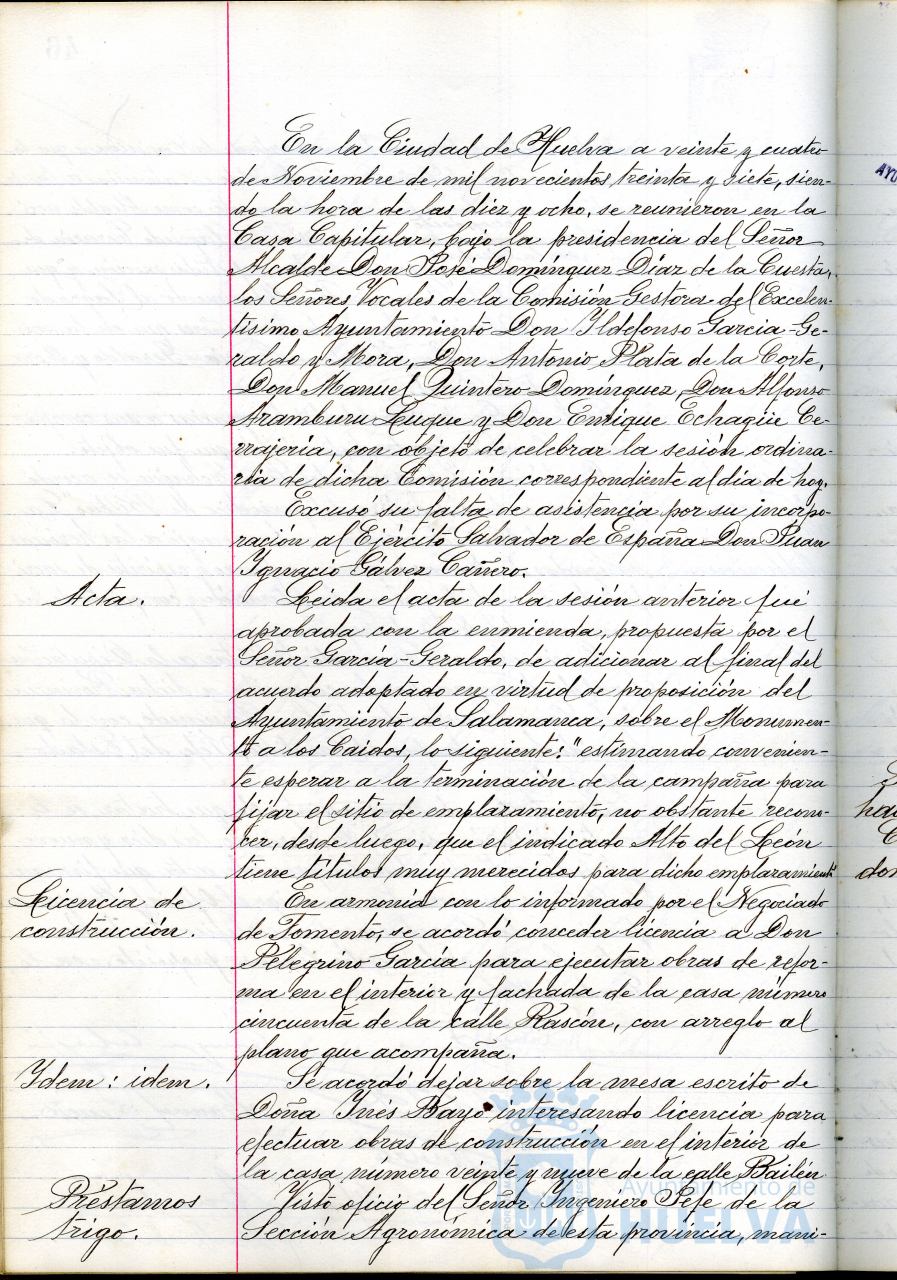 En la Ciudad de Huelva a veinte y cuatro
de Noviembre de mil novecientos treinta y siete, sien-
do la hora de las diez y ocho, se reunieron en la
Casa Capitular, bajo la presidencia del Señor
Alcalde Don José Domínguez Díaz de la Cuesta,
los Señores Vocales de la Comisión Gestora del Excelen-
tísimo Ayuntamiento Don Yldefonso García-Ge-
raldo y Mora, Don Antonio Plata de la Corte,
Don Manuel Quintero Domínguez, Don Alfonso
Aramburu Luque y Don Enrique Echagüe Ce-
rrajería, con objeto de celebrar la sesión ordina-
ria de dicha Comisión correspondiente al día de hoy.
Excusó su falta de asistencia por su incorpo-
ración al Ejército Salvador de España Don Juan
Ygnacio Gálvez Cañero.
Acta.
Leida el acta de la sesión anterior fué
aprobada con la enmienda, propuesta por el
Señor García-Geraldo, de adicionar al final del
acuerdo adoptado en virtud de proposición del
Ayuntamiento de Salamanca, sobre el Monumen-
to a los Caidos, lo siguiente: "estimando convenien-
te esperar a la terminación de la campaña para
fijar el sitio de emplazamiento, no obstante recono-
cer, desde luego, que el indicado Alto del León
tiene títulos muy merecidos para dicho emplazamiento
Licencia de
construcción.
En armonía con lo informado por el Negociado
de Fomento, se acordó conceder licencia a Don
Pelegrino García para ejecutar obras de refor-
ma en el interior y fachada de la casa número
cincuenta de la calle Rascón, con arreglo al
plano que acompaña.
Ydem: idem.
Se acordó dejar sobre la mesa escrito de
Doña Ynés Bayo interesando licencia para
efectuar obras de construcción en el interior de
la casa número veinte y nueve de la calle Bailén
Préstamos
trigo.
Visto oficio del Señor Ingeniero Jefe de la
Sección Agronómica de esta provincia, mani-
Ayuntamiento de
HUELVA